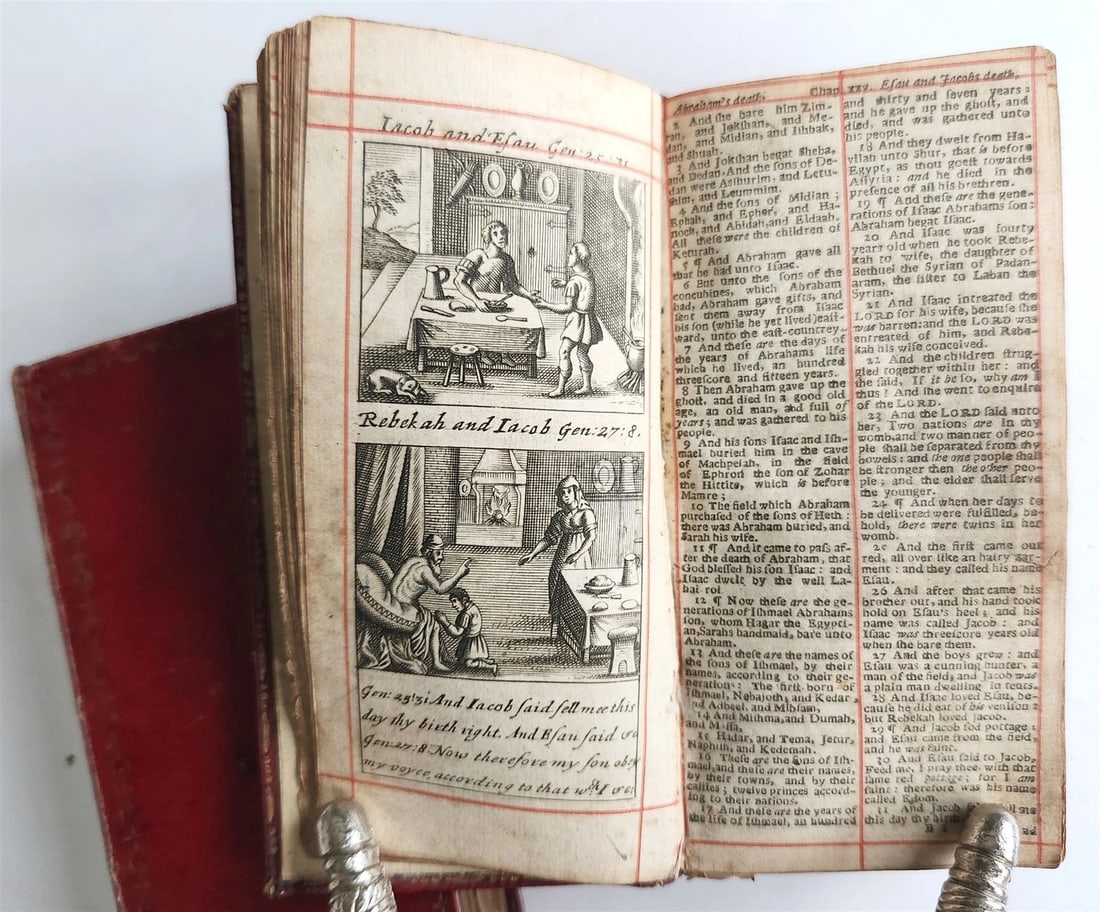 Iacob and Eſau Gen: 25:31
Rebekah and Iacob Gen: 27:8.
Gen: 25:31. And Iacob ſaid ſell mee this
day thy birth right. And Eſau ſaid &c
Gen: 27: 8. Now therefore my ſon obey
my voyce, according to that wch I &c:
Abraham's death. Chap. xxv. Eſau and Jacobs death.
2 And ſhe bare him Zim-
ran, and Jokſhan, and Me-
dan, and Midian, and Iſhbak,
and Shuah.
3 And Jokſhan begat Sheba,
and Dedan. And the ſons of De-
dan were Aſſhurim, and Letu-
ſhim, and Leummim.
4 And the ſons of Midian ;
Ephah, and Epher, and Ha-
noch, and Abidah, and Eldaah.
All theſe were the children of
Keturah.
5 ¶ And Abraham gave all
that he had unto Iſaac.
6 But unto the ſons of the
concubines, which Abraham
had, Abraham gave gifts, and
ſent them away from Iſaac
his ſon (while he yet lived) eaſt-
ward, unto the eaſt-countrey.
7 And theſe are the days of
the years of Abrahams life
which he lived, an hundred
threeſcore and fifteen years.
8 Then Abraham gave up the
ghoſt, and died in a good old
age, an old man, and full of
years; and was gathered to his
people.
9 And his ſons Iſaac and Iſh-
mael buried him in the cave
of Machpelah, in the field
of Ephron the ſon of Zohar
the Hittite, which is before
Mamre ;
10 The field which Abraham
purchaſed of the ſons of Heth :
there was Abraham buried, and
Sarah his wife.
11 ¶ And it came to paſs af-
ter the death of Abraham, that
God bleſſed his ſon Iſaac : and
Iſaac dwelt by the well La-
hai-roi.
12 ¶ Now theſe are the ge-
nerations of Iſhmael Abrahams
ſon, whom Hagar the Egypti-
an, Sarahs handmaid, bare unto
Abraham.
13 And theſe are the names of
the ſons of Iſhmael, by their
names, according to their ge-
nerations : The firſt-born of
Iſhmael, Nebajoth, and Kedar,
and Adbeel, and Mibſam,
14 And Miſhma, and Dumah,
and Maſſa,
15 Hadar, and Tema, Jetur,
Naphiſh, and Kedemah.
16 Theſe are the ſons of Iſh-
mael, and theſe are their names,
by their towns, and by their
caſtles ; twelve princes accord-
ing to their nations.
17 And theſe are the years of
the life of Iſhmael, an hundred
and thirty and ſeven years :
and he gave up the ghoſt, and
died, and was gathered unto
his people.
18 And they dwelt from Ha-
vilah unto Shur, that is before
Egypt, as thou goeſt towards
Aſſyria : and he died in the
preſence of all his brethren.
19 ¶ And theſe are the gene-
rations of Iſaac Abrahams ſon :
Abraham begat Iſaac.
20 And Iſaac was fourty
years old when he took Rebe-
kah to wife, the daughter of
Bethuel the Syrian of Padan-
aram, the ſiſter to Laban the
Syrian.
21 And Iſaac intreated the
LORD for his wife, becauſe ſhe
was barren: and the LORD was
entreated of him, and Rebe-
kah his wife conceived.
22 And the children ſtrug-
gled together within her : and
ſhe ſaid, If it be ſo, why am I
thus ? And ſhe went to enquire
of the LORD.
23 And the LORD ſaid unto
her, Two nations are in thy
womb, and two manner of peo-
ple ſhall be ſeparated from thy
bowels : and the one people ſhall
be ſtronger then the other peo-
ple ; and the elder ſhall ſerve
the younger.
24 ¶ And when her days to
be delivered were fulfilled, be-
hold, there were twins in her
womb.
25 And the firſt came out
red, all over like an hairy gar-
ment : and they called his name
Eſau.
26 And after that came his
brother out, and his hand took
hold on Eſau's heel ; and his
name was called Jacob : and
Iſaac was threeſcore years old
when ſhe bare them.
27 And the boys grew : and
Eſau was a cunning hunter, a
man of the field; and Jacob was
a plain man dwelling in tents.
28 And Iſaac loved Eſau, be-
cauſe he did eat of his veniſon :
but Rebekah loved Jacob.
29 ¶ And Jacob ſod pottage :
and Eſau came from the field,
and he was faint.
30 And Eſau ſaid to Jacob,
Feed me, I pray thee, with that
ſame red pottage; for I am
faint : therefore was his name
called Edom.
31 And Jacob me
this day thy birth